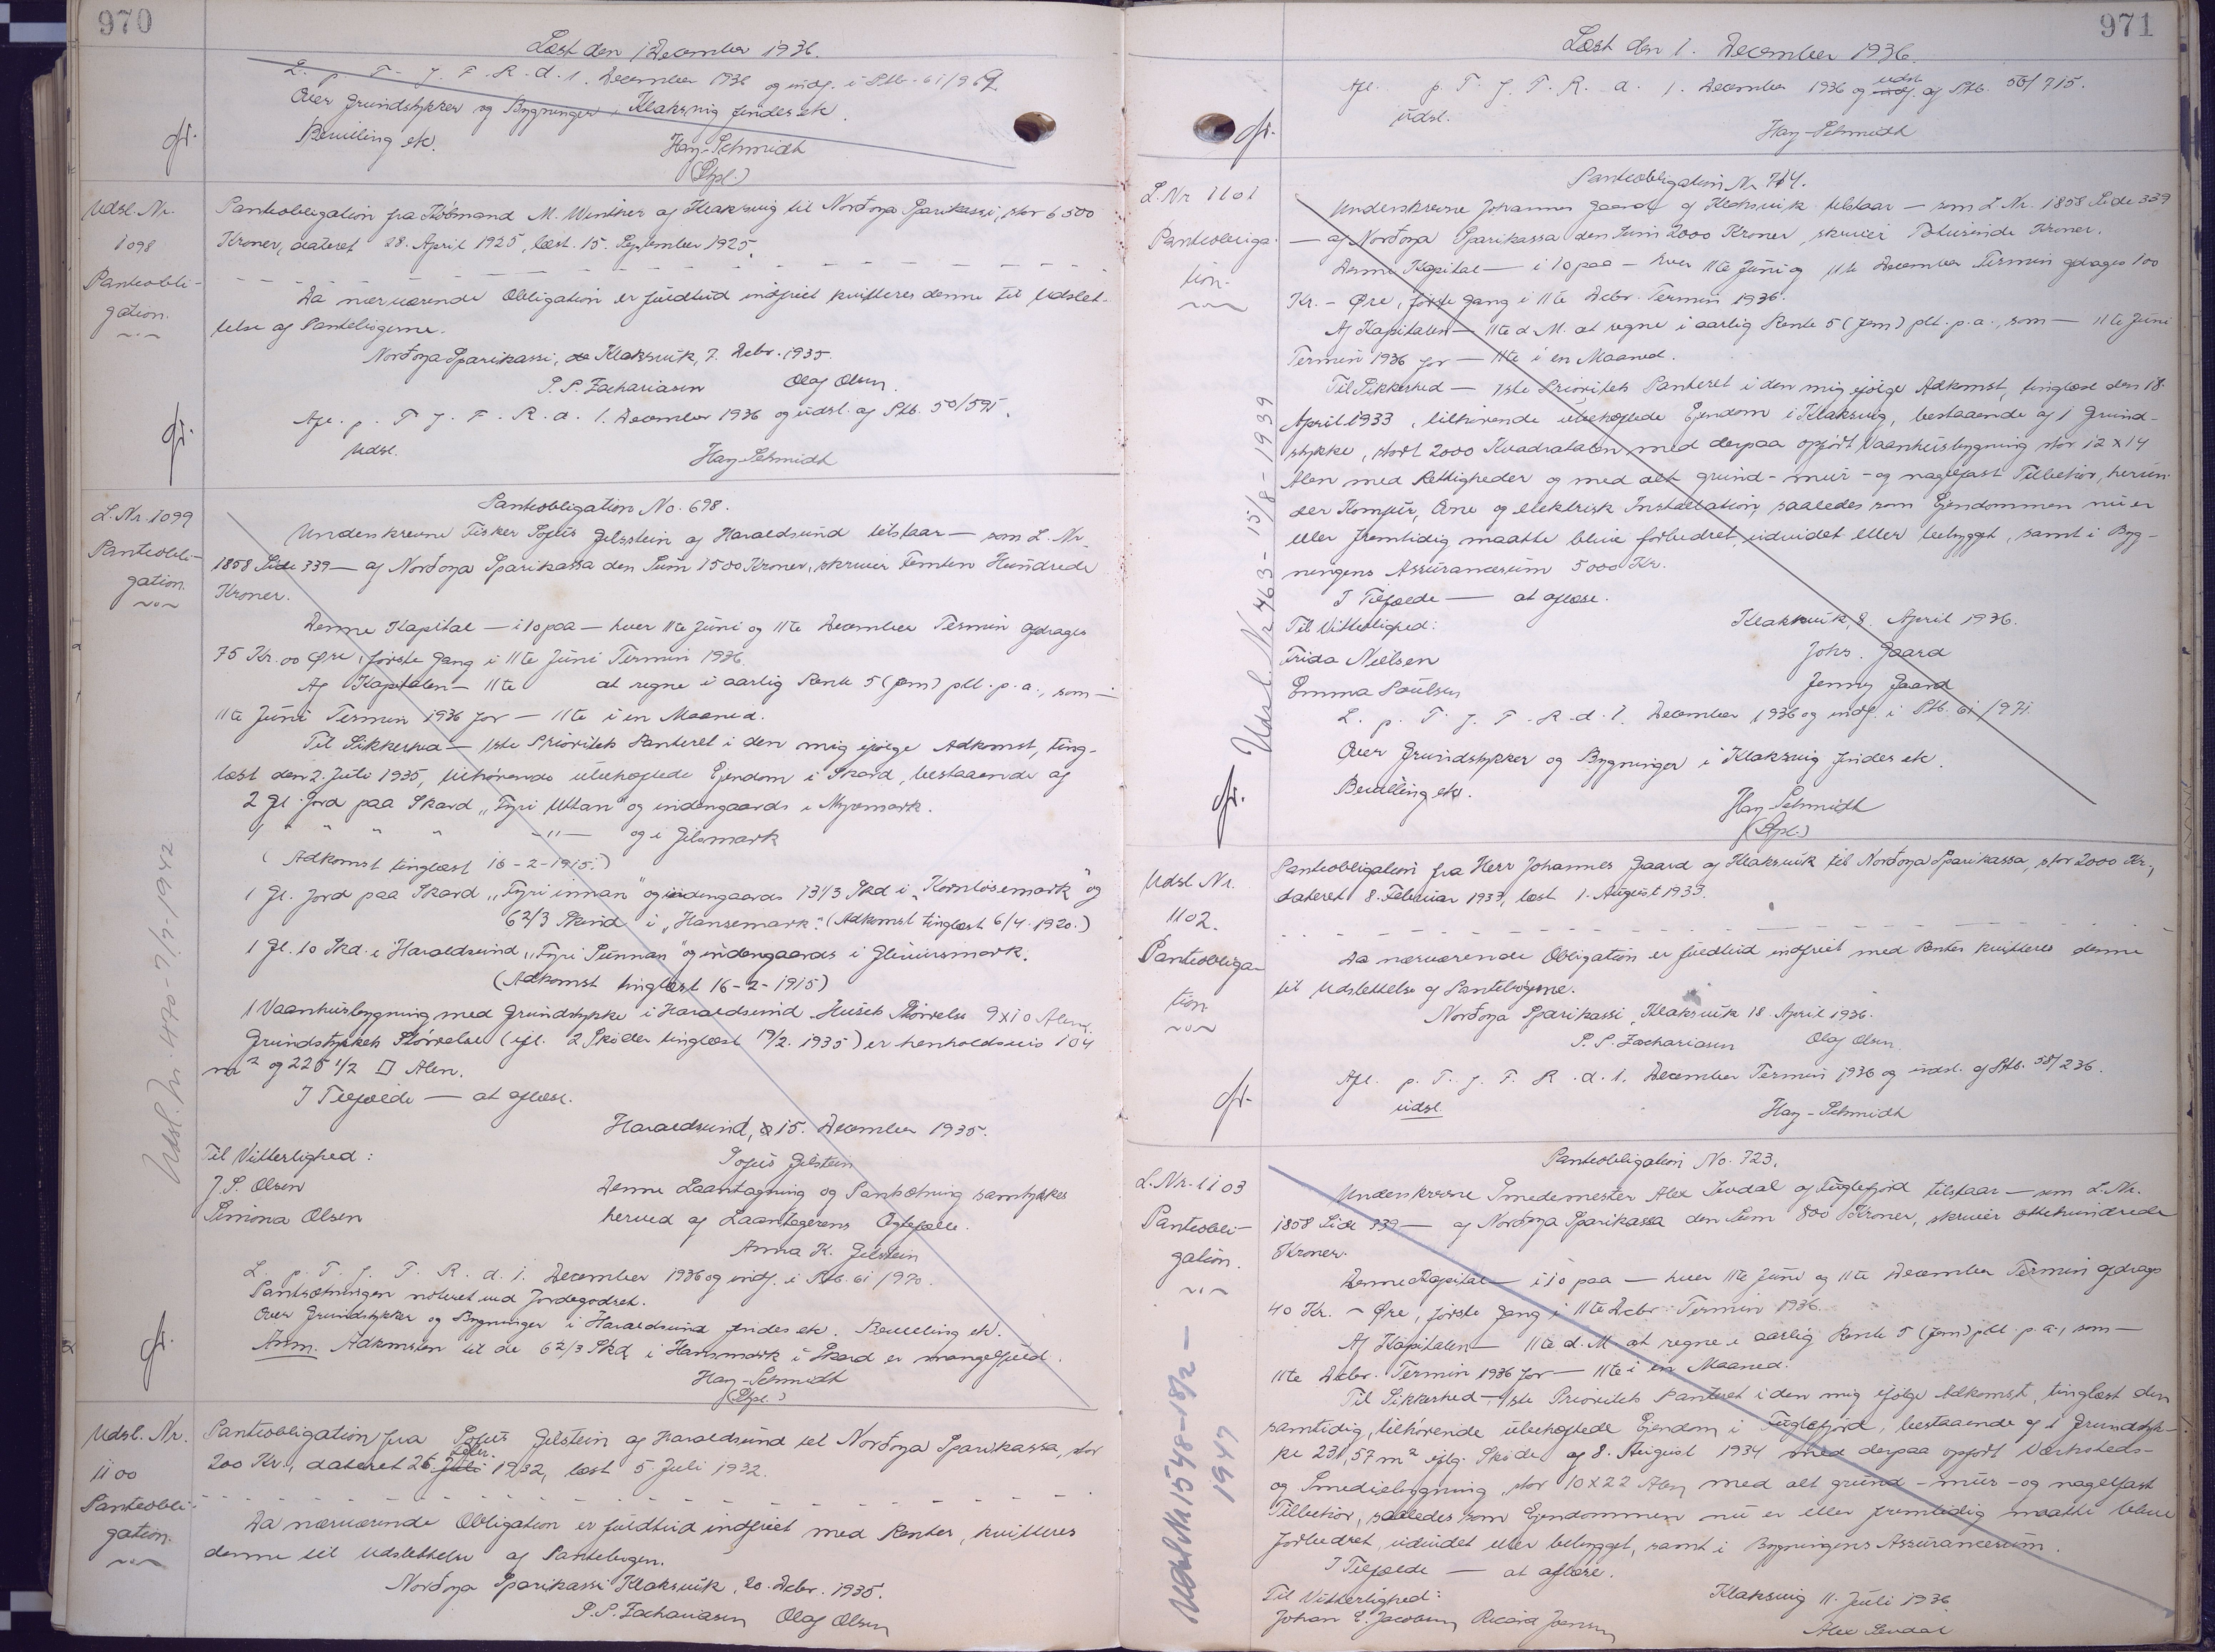 970
Læst den 1 December 1936.
L. p. T. f. F. R. d. 1. December 1936 og indf. i Ptb. 61/969
Over Grundstykker og Bygninger i Klaksvig findes ek.
Bevilling ek.
Hay-Schmidt
Udsl. Nr.
1098
Panteobli-
gation.
Panteobligation fra Købmand M. Winther af Klaksvig til Norðoya Sparikassi, stor 6500
Kroner, dateret 28. April 1925, læst 15. September 1925.
Da nærværende Obligation er fuldtud indfriet kvitteres denne til Udslet-
telse af Pantebøgerne.
Norðoya Sparikassi, Klaksvik, 7. Debr. 1935.
P. S. Zachariasen Olaf Olsen.
Afl. p. T. f. F. R. d. 1. December 1936 og udsl. af Ptb. 50/595.
Udsl.
Hay-Schmidt
L. Nr. 1099
Panteobli-
gation.
Panteobligation No. 698.
Underskrevne Fisker Sofus Gilstein af Haraldsund tilstaar — som L. Nr.
1858 Side 339 — af Norðoya Sparikassa den Sum 1500 Kroner, skriver Femten Hundrede
Kroner.
Denne Kapital — i 10 paa — hver 11te Juni og 11te December Termin afdrages
75 Kr. 00 Øre, første Gang i 11te Juni Termin 1936.
Af Kapitalen — 11te at regne i aarlig Rente 5 (fem) pct. p. a., som —
11te Juni Termin 1936 for — 11te i en Maaned.
Til Sikkerhed — 1ste Prioritets Panteret i den mig ifølge Adkomst, ting-
læst den 2. Juli 1935, tilhørende ubehæftede Ejendom i Skard, bestaaende af
2 Gl. Jord paa Skard „Fyri Uttan" og indengaards i Myremark.
1 " " " " —"— og i Gilsmark
(Adkomst tinglæst 16-2-1915.)
1 Gl. Jord paa Skard „Fyri innan" og indengaards 13 1/3 Skd i „Kornløsemark" og
6 2/3 Skind i „Hansemark". (Adkomst tinglæst 6/4. 1920.)
1 Gl. 10 Skd. i Haraldsund „Fyri Sunnan" og indengaards i Glivursmark.
(Adkomst tinglæst 16-2-1915)
1 Vaanhusbygning med Grundstykke i Haraldsund. Husets Størrelse 9x10 Alen.
Grundstykkets Størrelse (ifl. 2 Skøder tinglæst 19/2. 1935) er henholdsvis 104
m² og 225 1/2 □ Alen.
I Tilfælde — at aflæse.
Haraldsund, 15. December 1935.
Til Vitterlighed: Sofus Gilstein
J. S. Olsen Denne Laantagning og Pantsætning samtykkes
Simona Olsen herved af Laantagerens Ægtefælle.
Anna K. Gilstein
L. p. T. f. F. R. d. 1. December 1936 og indf. i Ptb. 61/970.
Pantsætningen noteret ved Jordegodset.
Over Grundstykker og Bygninger i Haraldsund findes ek. Bevilling ek.
Anm. Adkomsten til de 6 2/3 Skd i Hansmark i Skard er mangelfuld.
Hay-Schmidt
Udsl. Nr. 470-7/7-1942
Udsl. Nr.
1100
Panteobli-
gation.
Panteobligation fra Sofus Gilstein af Haraldsund til Norðoya Sparikassa, stor
200 Kr., dateret 26. Juli 1932, læst 5 Juli 1932.
Da nærværende Obligation er fuldtud indfriet med Renter, kvitteres
denne til Udslettelse af Pantebogen.
Norðoya Sparikassi Klaksvik, 20. Debr. 1935.
P. S. Zachariasen Olaf Olsen
971
Læst den 1. December 1936.
Afl. p. T. f. F. R. d. 1. December 1936 og udsl. af Ptb. 56/715.
udsl.
Hay-Schmidt
L. Nr 1101
Panteobliga-
tion.
Panteobligation Nr 714.
Underskrevne Johannes Gaard af Klaksvik tilstaar — som L. Nr. 1858 Side 339
— af Norðoya Sparikassa den Sum 2000 Kroner, skriver Totusende Kroner.
Denne Kapital — i 10 paa — hver 11te Juni og 11te December Termin afdrages 100
Kr. - Øre, første Gang i 11te Debr. Termin 1936.
Af Kapitalen — 11te d. M. at regne i aarlig Rente 5 (fem) pct. p. a., som — 11te Juni
Termin 1936 for — 11te i en Maaned.
Til Sikkerhed — 1ste Prioritets Panteret i den mig ifølge Adkomst, tinglæst den 18.
April 1933, tilhørende ubehæftede Ejendom i Klaksvig, bestaaende af 1 Grund-
stykke, stort 2000 Kvadratalen med derpaa opført Vaanhusbygning stor 12 x 14
Alen med Rettigheder og med alt grund- mur- og nagelfast Tilbehør, herun-
der Komfur, Ovne og elektrisk Installation, saaledes som Ejendommen nu er
eller fremtidig maatte blive forbedret, udvidet eller bebygget, samt i Byg-
ningens Assurancesum 5000 Kr.
I Tilfælde — at aflæse.
Til Vitterlighed: Klaksvik, 8. April 1936.
Frida Nielsen Johs. Gaard
Emma Poulsen Jenny Gaard
L. p. T. f. F. R. d. 1. December 1936 og indf. i Ptb. 61/971.
Over Grundstykker og Bygninger i Klaksvig findes ek.
Bevilling ek.
Hay-Schmidt
Udsl. Nr 463-15/8-1939
Udsl. Nr.
1102.
Panteobliga-
tion
Panteobligation fra Herr Johannes Gaard af Klaksvik til Norðoya Sparikassa, stor 2000 Kr.,
dateret 8. Februar 1933, læst 1. August 1933.
Da nærværende Obligation er fuldtud indfriet med Renter kvitteres denne
til Udslettelse af Pantebøgerne.
Norðoya Sparikassi, Klaksvik 18. April 1936.
P. S. Zachariasen Olaf Olsen.
Afl. p. T. f. F. R. d. 1. December Termin 1936 og udsl. af Ptb. 58/236.
udsl.
Hay-Schmidt
L. Nr. 1103
Panteobli-
gation.
Panteobligation No. 723.
Underskrevne Smedemester Alex af Fuglefjord tilstaar — som L. Nr.
1858 Side 339 — af Norðoya Sparikassa den Sum 800 Kroner, skriver ottehundrede
Kroner.
Denne Kapital — i 10 paa — hver 11te Juni og 11te December Termin afdrages
40 Kr. - Øre, første Gang i 11te Debr. Termin 1936.
Af Kapitalen — 11te d. M. at regne i aarlig Rente 5 (fem) pct. p. a., som —
11te Debr. Termin 1936 for — 11te i en Maaned.
Til Sikkerhed — 1ste Prioritets Panteret i den mig ifølge Adkomst, tinglæst den
samtidig, tilhørende ubehæftede Ejendom i Fuglefjord, bestaaende af 1 Grundstyk-
ke 231,57 m² iflg. Skøde af 8. August 1934 med derpaa opført Værksteds-
og Smediebygning, stor 10x22 Alen med alt grund- mur- og nagelfast
Tilbehør, saaledes som Ejendommen nu er eller fremtidig maatte blive
forbedret, udvidet eller bebygget, samt i Bygningens Assurancesum.
I Tilfælde — at aflæse.
Til Vitterlighed: Klaksvig 11. Juli 1936
Johan E. Jacobsen Ricard Joensen Alex
Udsl. Nr 1548-18/2-
1947